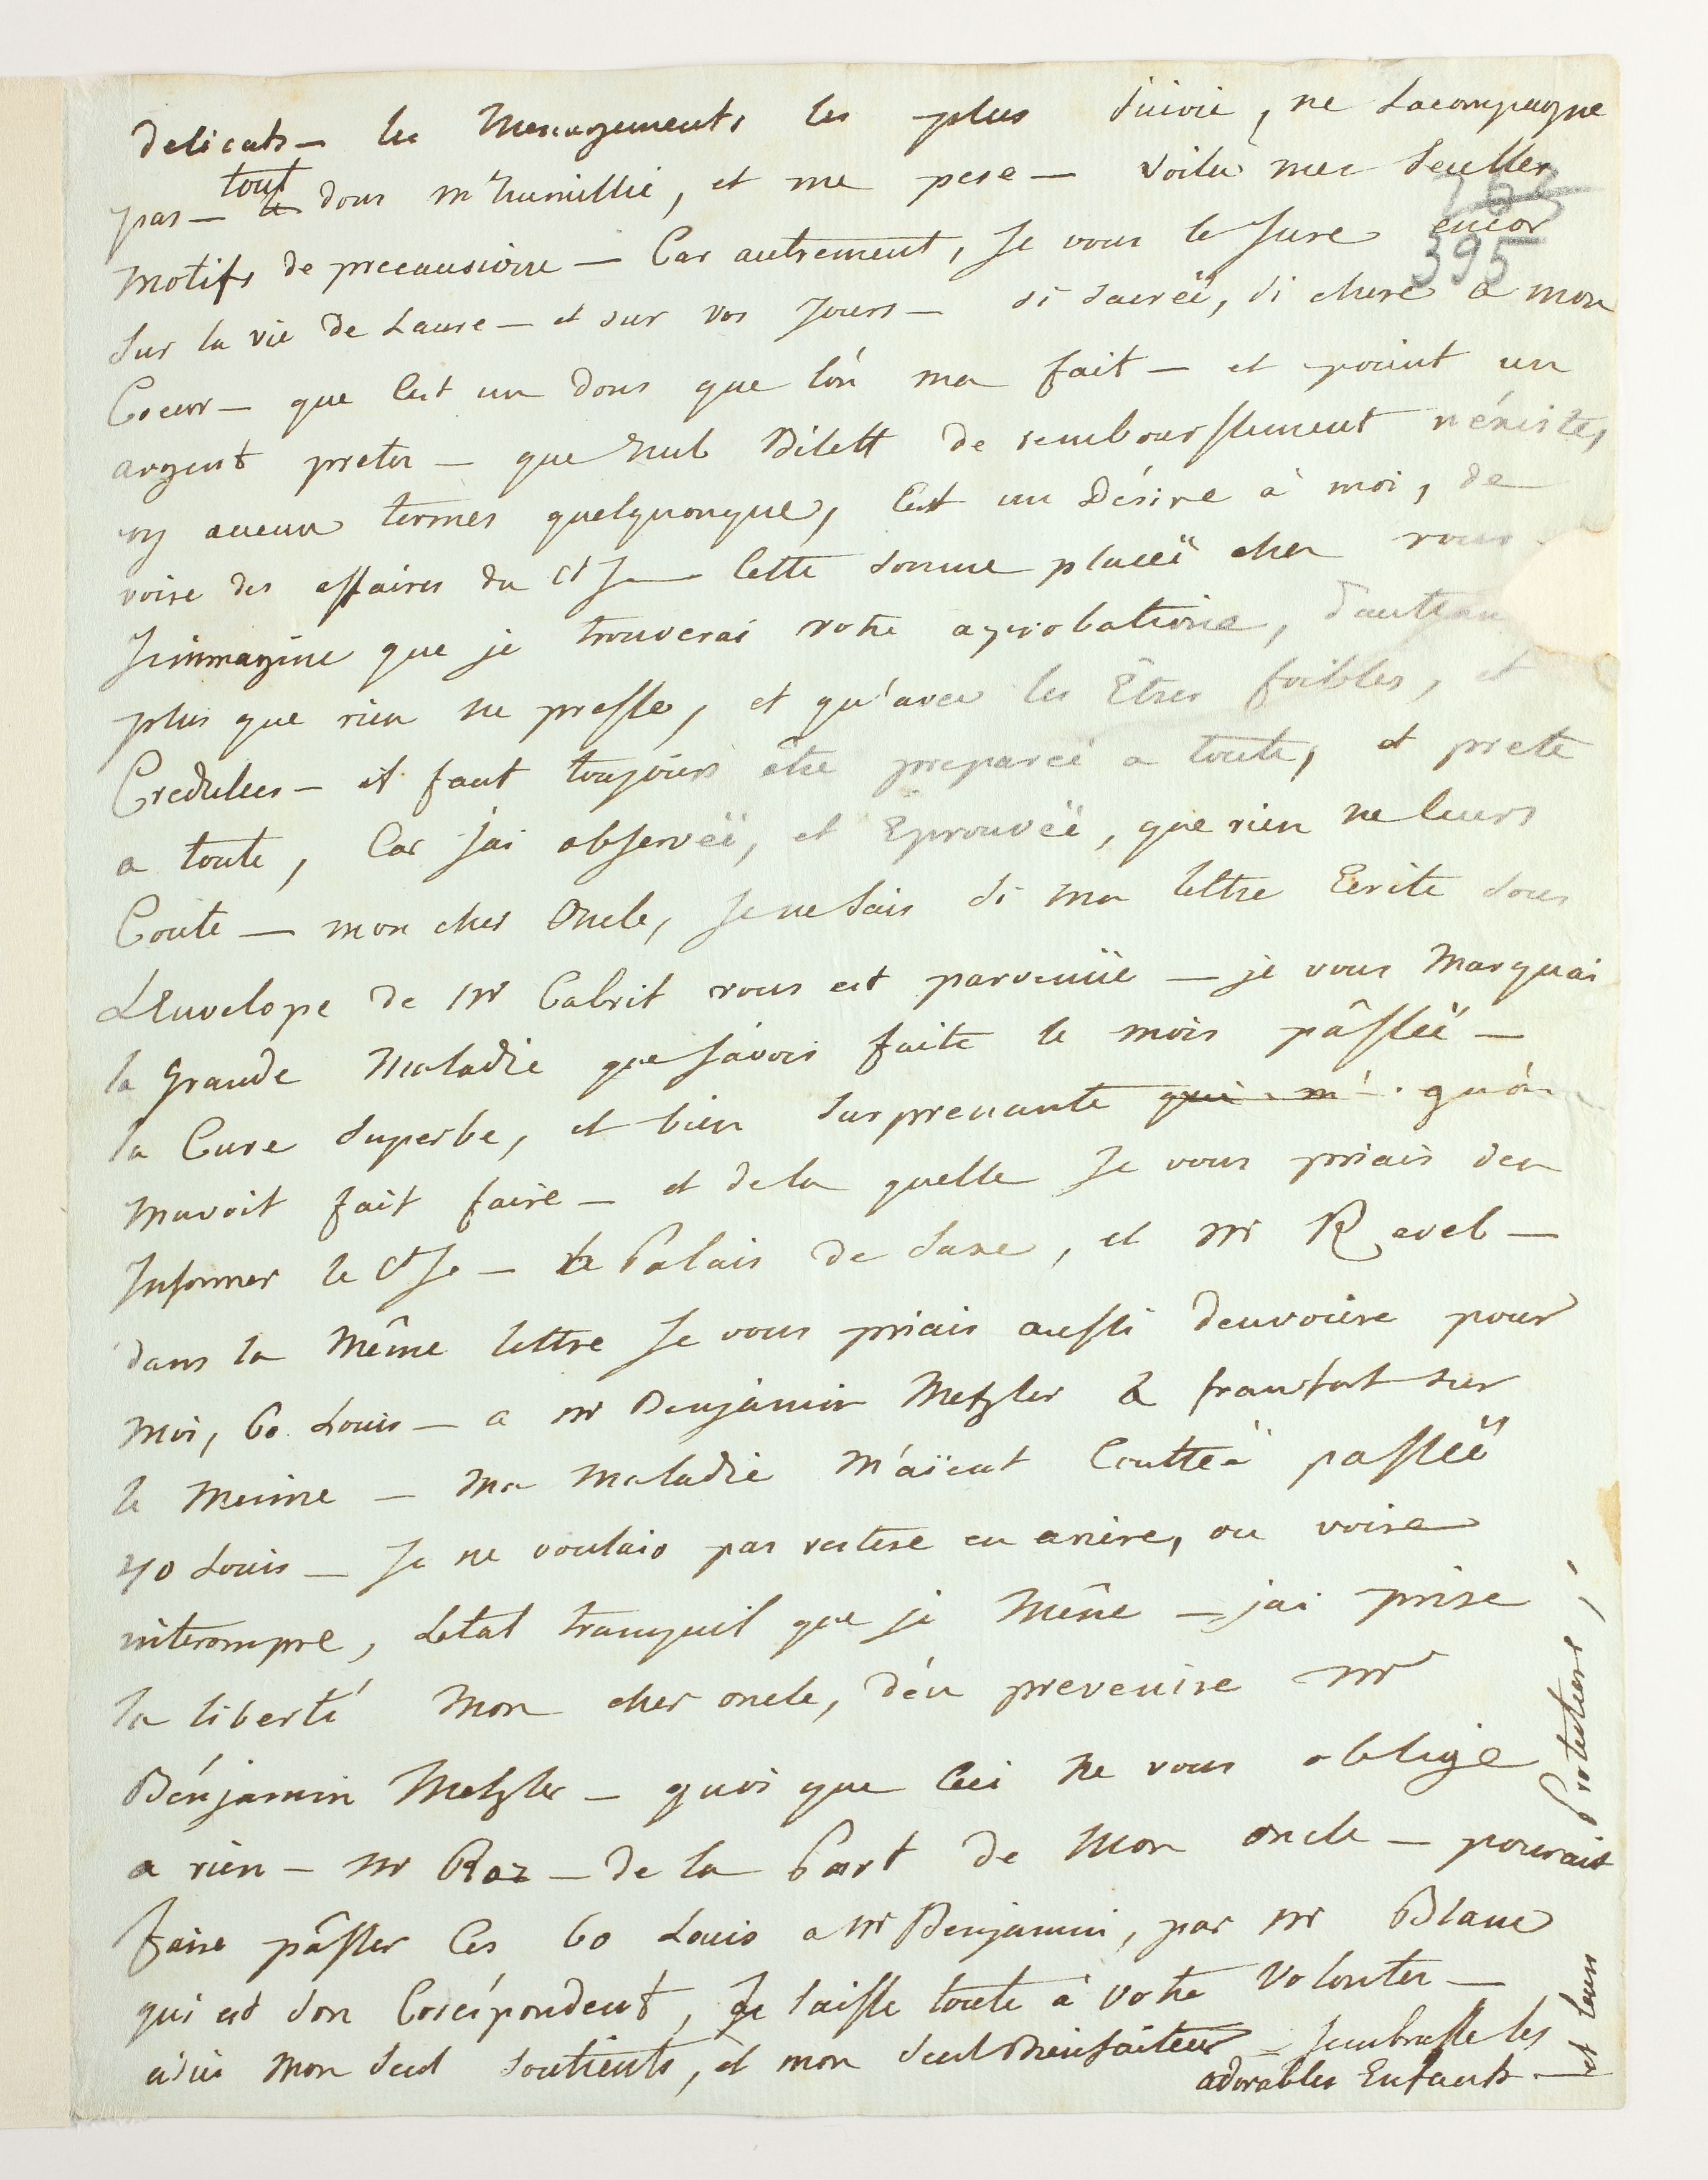 delicats — les Menagements les plus suivie, ne Lacompagne
pas — tout dons m'humillié, et me pese — voila mes seulles
763
motifs de precausionne — Car autrement, Je vous le Jure encor
395
sur la vie de Laure — et sur vos Jours — si sacréë, si chere a mon
Coeur — que Cest un dons que l'on ma fait — et point un
argent preter — que nul Bilett de rembourssement n'éxiste,
ny aucun termes quelquonque, Cest un Désire à moi, de
voire des affaires du Ct J— Cette somme placéë cher vous
J'immagine que je trouverai votre aprobationne, d'autan
plus que rien ne presse, et qu'avec les Êtres foibles, et
Credulees — il faut toujours être preparéé a toute, et prete
a toute, Car j'ai observéë, et Eprouvéë, que rien ne leurs
Coute — mon cher Oncle, Je ne sais si ma lettre Ecrite sous
L'Envelope de Mr Cabrit vous est parvenüe — je vous Marquai
la grande Maladie que J'avois faite le mois pâsséë —
la Cure superbe, et bien surprenante qui m' qu'on
m'avoit fait faire — et de la quelle Je vous priais den
Informer le Ct Je — le Palais de Saxe, et Mr Ravel —
dans la Même lettre Je vous priais aussi d'envoiere pour
Moi, 60 Louis — a Mr Benjamin Metzler a francfort sur
le Meine — Ma Maladie M'aïent Coutteé passéë
40 Louis — Je ne voulais pas restere en ariere, ou voire
interompre, Létat tranquil que je Mêne — jai prise
la liberté Mon cher oncle, d'én prevenire Mr
Bénjamin Metzler — quoi que Ceci ne vous oblige
a rien — Mr Raz — de la Part de Mon oncle — pourait
faire pâsser Ces 60 Louis a Mr Benjamin, par Mr Blanc
qui est son Coréspondent, Je laisse toute à votre Volonter —
adieu Mon seul soutients, et mon seul Bienfaiteur — J'embrasse les
adorables Enfants —
et leurs Protecteurs,